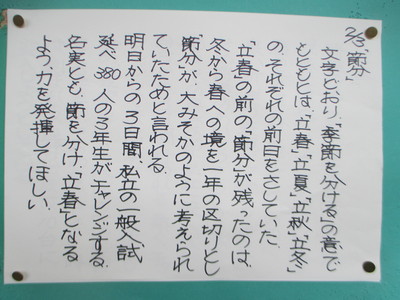 2/3「節分」
文字どおり「季節を分ける」の意で
もともとは、「立春」「立夏」「立秋」「立冬」
の、それぞれの前日をさしていた
「立春」の前の「節分」が残ったのは、
冬から春への境を一年の区切りとし
「節分」が、大みそかのように考えられ
ていたためと言われる。
明日からの3日間、私立の一般入試
延べ380人の3年生がチャレンジする。
名実とも、節を分け、「立春」となる
よう、力を発揮してほしい。